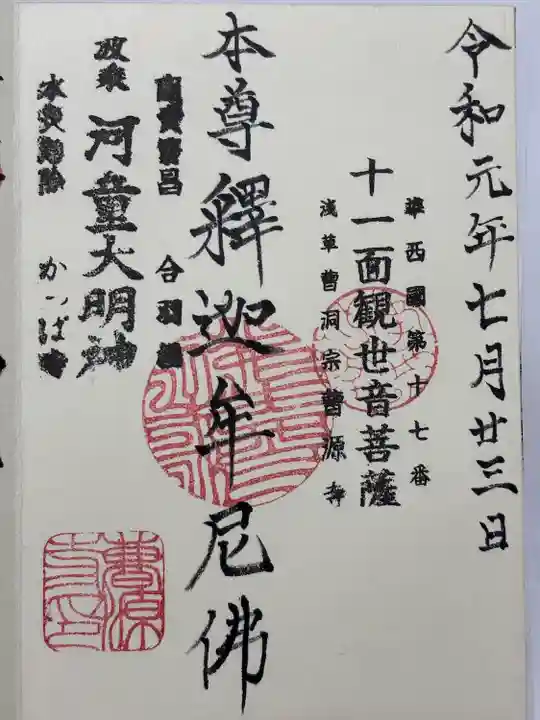 令和元年七月廿三日
準西國第十七番
十一面観世音菩薩
浅草曹洞宗曹源寺
本尊釋迦牟尼佛
商賣繁昌 合羽
波乗 河童大明神
水災 かっぱ寺
曹源